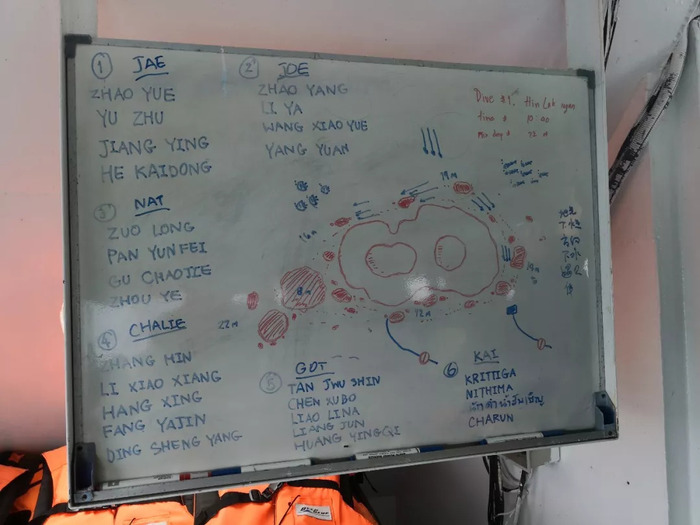 ① JAE
ZHAO YUE
YU ZHU
JIANG YING
HE KAIDONG
2 JOE
ZHAO YANG
LI YA
WANG XIAO YUE
YANG YUAN
Dive #1.
10 00
3 NAT
ZUO LONG
PAN YUNFEI
GU CHAOJIE
ZHOU YE
④ CHALIE
ZHANG MIN
LI XIAO XIANG
HANG XING
FANG YAJIN
DING SHENG YANG
⑤ GOT
TAN JWU SHIN
CHEN XUBO
LIAO LINA
LIANG JUN
HUANG YINGQI
⑥ KAI
KRITTIGA
NITHIMA
CHARUN
16 m
8 m
22 m
12 m